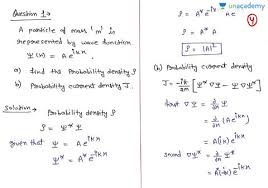 Question 1 →
A particle of mass 'm' is
represented by wave function
Ψ(x) = A e^{ikx}
a) find the Probability density ρ
b) Probability current density J.
Solution → Probability density
ρ = Ψ* Ψ
given that Ψ = A e^{ikx}
Ψ* = A* e^{-ikx}
unacademy
4
ρ = A* A
ρ = |A|²
(b) Probability current density
[Ψ* ∇Ψ - Ψ ∇Ψ*]
∇Ψ = ∂/∂x Ψ
= ∂/∂x (A e^{ikx})
= A(ik) e^{ikx}
and ∇Ψ* = ∂/∂x Ψ*